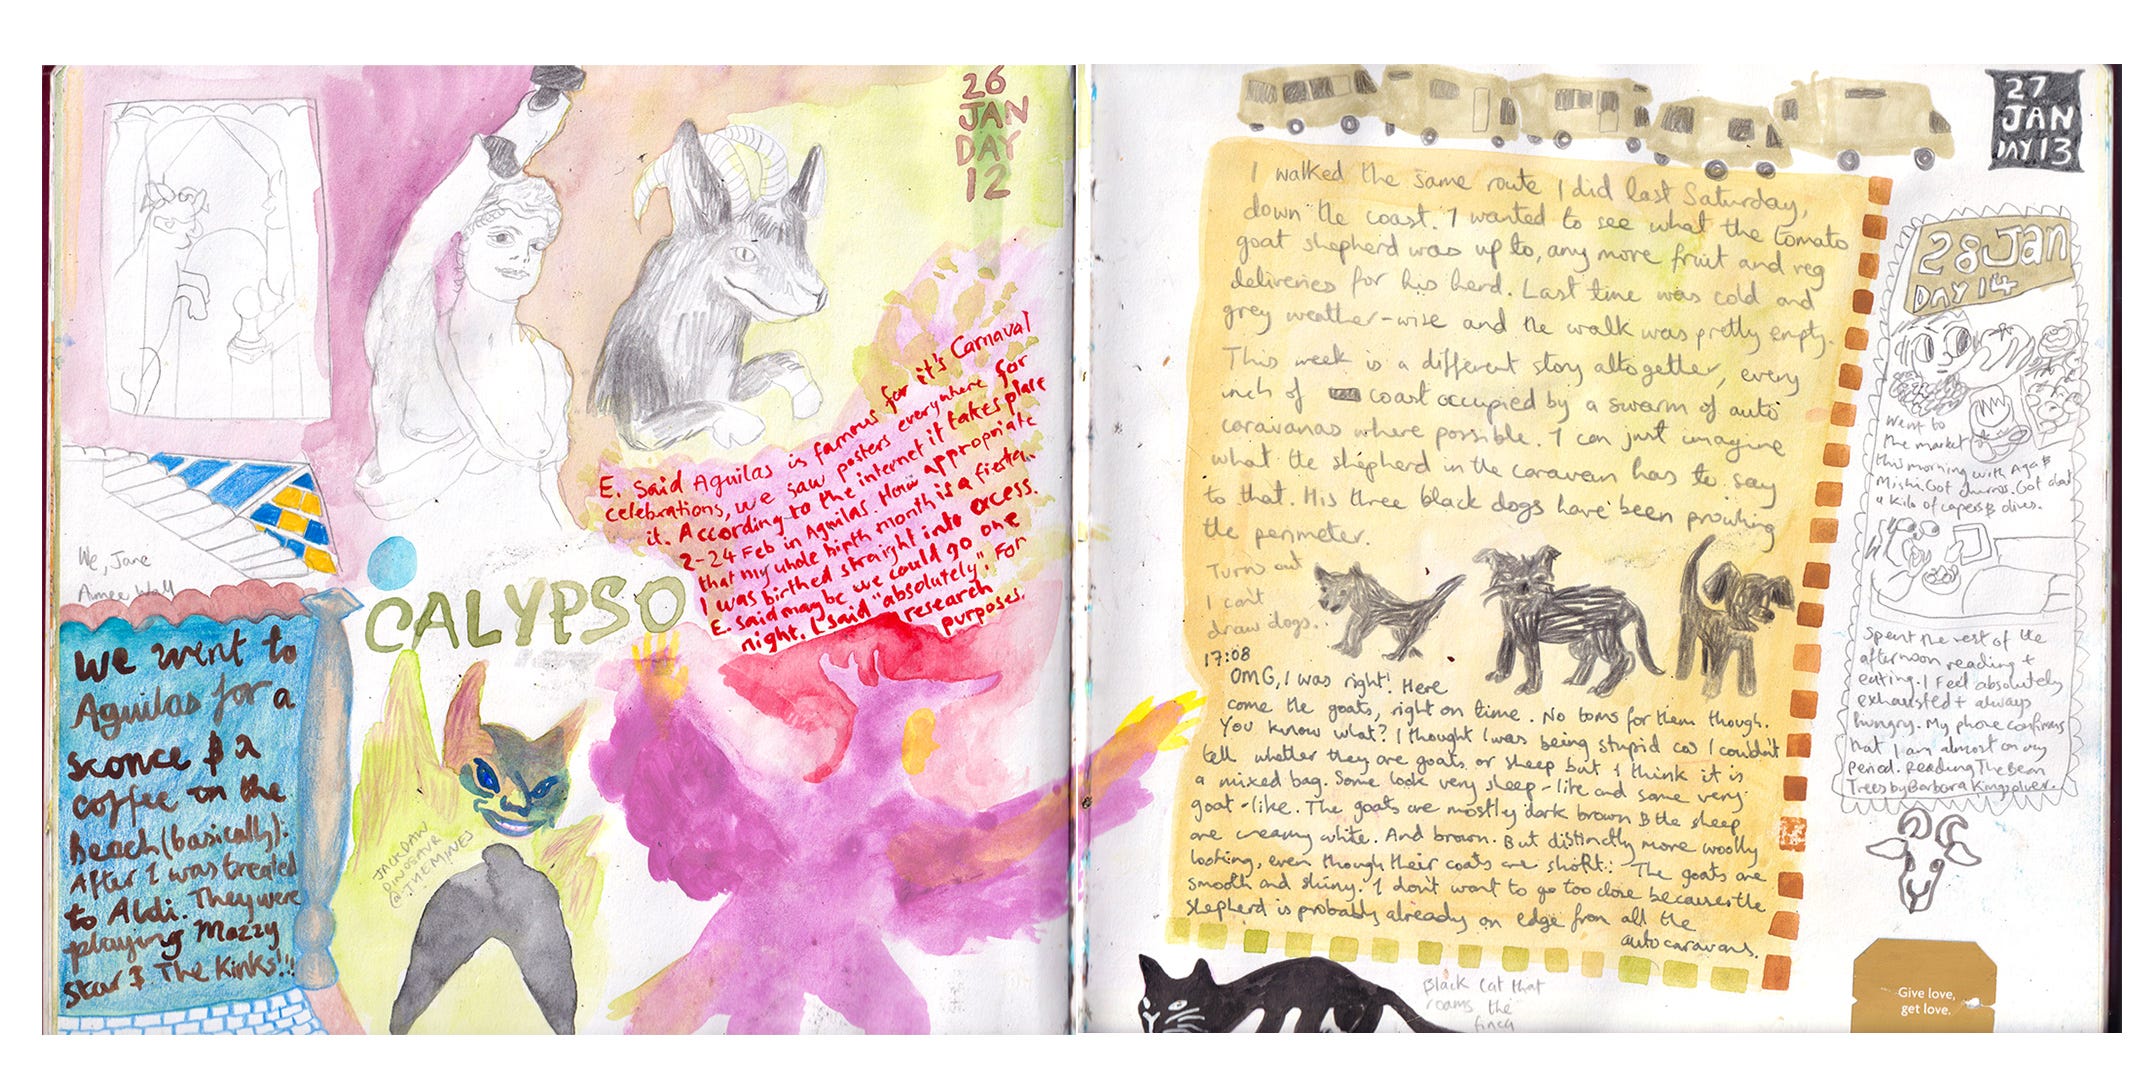 26
JAN
DAY
12
E. said Aguilas is famous for it's Carnaval
celebrations, we saw posters everywhere for
it. According to the internet it takes place
2-24 Feb in Aguilas. How appropriate
that my whole birth month is a fiesta.
I was birthed straight into excess.
E. said maybe we could go one
night. I said "absolutely". For
research
purposes.
We, Jane
Aimee Wall
CALYPSO
We went to
Aguilas for a
sconce & a
coffee on the
Beach (basically).
After I was treated
to Aldi. They were
playing Mazzy
Star & The Kinks!!
JACKDAW
DINOSAUR
@ THEMINES
27
JAN
DAY 13
I walked the same route I did last Saturday,
down the coast. I wanted to see what the tomato
goat shepherd was up to, any more fruit and veg
deliveries for his herd. Last time was cold and
grey weather-wise and the walk was pretty empty.
This week is a different story altogether, every
inch of coast occupied by a swarm of auto
caravanas where possible. I can just imagine
what the shepherd in the caravan has to say
to that. His three black dogs have been prowling
the perimeter.
Turns out
I can't
draw dogs.
17:08
OMG, I was right! Here
come the goats, right on time. No toms for them though.
You know what? I thought I was being stupid cos I couldn't
tell whether they are goats or sheep but I think it is
a mixed bag. Some look very sheep-like and some very
goat-like. The goats are mostly dark brown & the sheep
are creamy white. And brown. But distinctly more woolly
looking, even though their coats are short. The goats are
smooth and shiny. I don't want to go too close because the
shepherd is probably already on edge from all the
autocaravans.
Black cat that
roams the
finca
28 Jan
DAY 14
Went to
the market
this morning with Aga &
Mishi. Got churros. Got about
a kilo of capers & olives.
Spent the rest of the
afternoon reading +
eating. I feel absolutely
exhausted + always
hungry. My phone confirms
that I am almost on my
period. Reading The Bean
Trees by Barbara Kingsolver.
Give love,
get love.